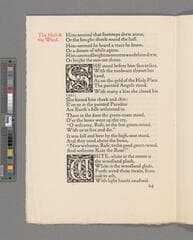 The Hall &
the Wood.
Him-seemed that footsteps drew anear,
Or the boughs shook round the hall.
Him-seemed he heard a voice he knew,
Or a dream of while agone.
Him-seemed
Or bright the sun-set shone.
SHE stood before him face to face,
With the sunbeam thwart her
hand,
As on the gold of the Holy Place
The painted Angels stand.
With many a kiss she closed his
eyes;
She kissed him cheek and chin:
E'en so in the painted Paradise
Are Earth's folk welcomed in.
There in the door the green-coats stood,
O'er the bows went up the cry,
"O welcome, Rafe, to the free green-wood,
With us to live and die."
It was bill and bow by the high-seat stood,
And they cried above the bows,
"Now welcome, Rafe, to the good green-wood,
And welcome Kate the Rose!"
WHITE, white in the moon is
the woodland plash,
White is the woodland glade,
Forth wend those twain, from
oak to ash,
With light hearts unafraid.
64